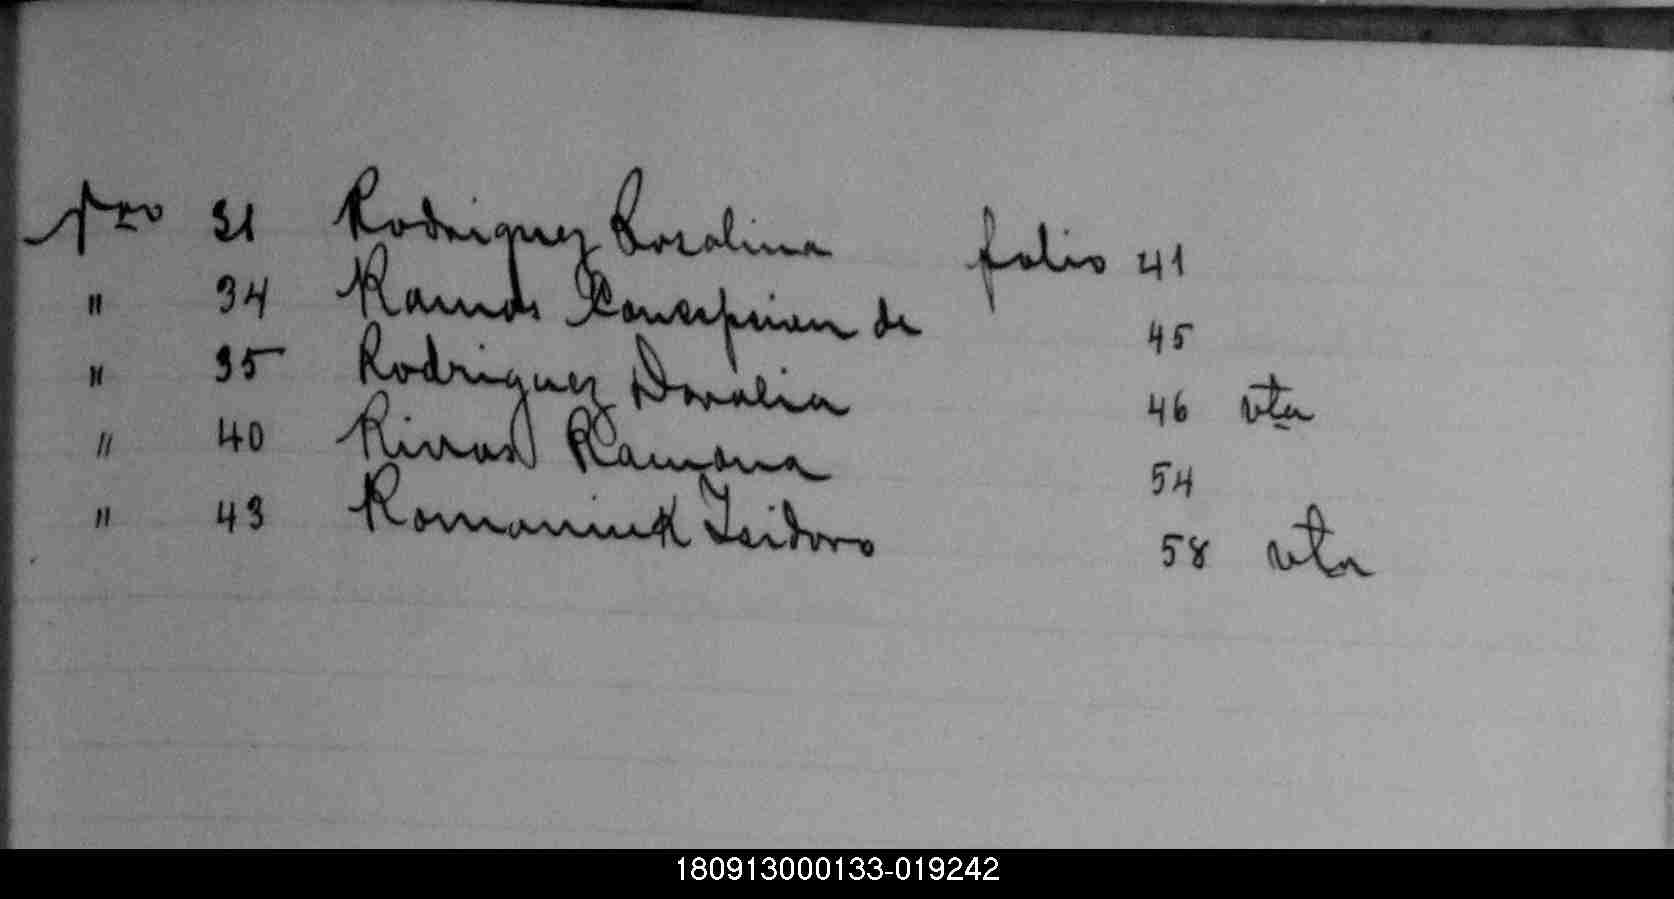 Nro 31 Rodriguez Rosalina folio 41
" 34 Ramos Concepcion de 45
" 35 Rodriguez Doralia 46 vta
" 40 Rivas Ramona 54
" 43 Romaniuk Isidoro 58 vta
180913000133-019242